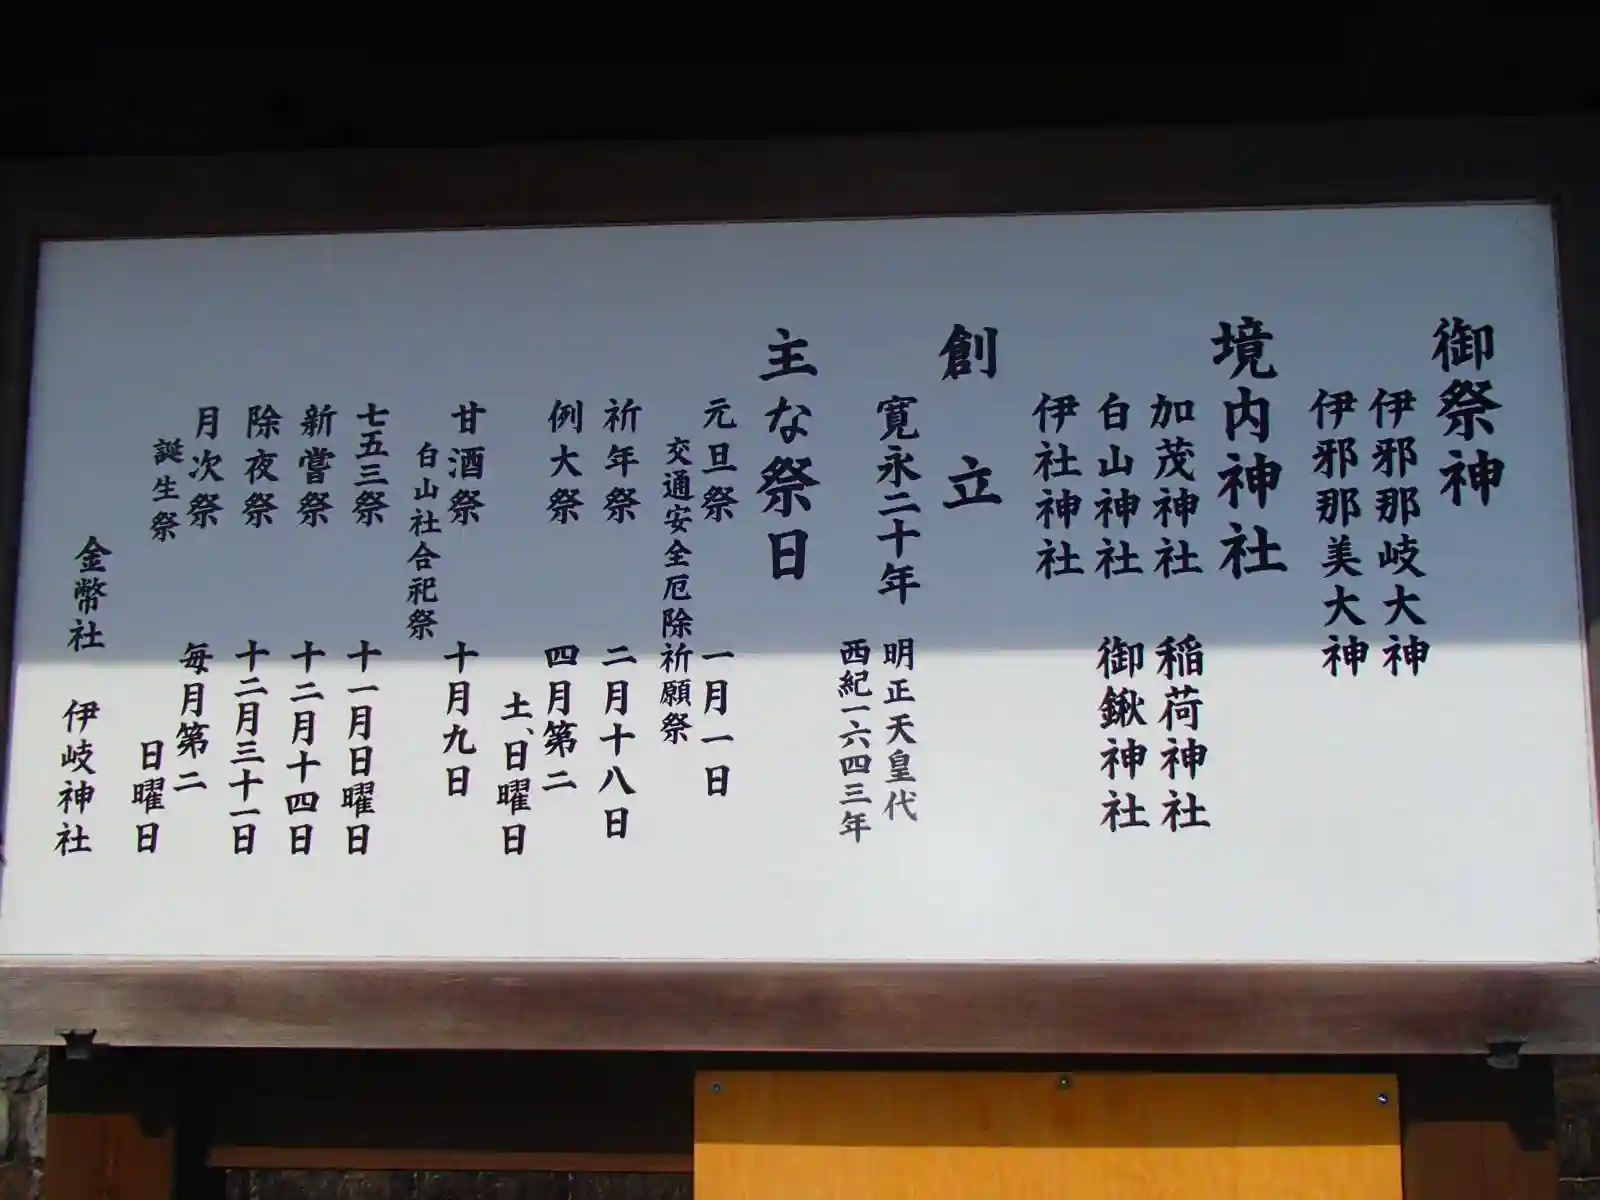 御祭神
伊邪那岐大神
伊邪那美大神
境内神社
加茂神社 稲荷神社
白山神社 御鍬神社
伊社神社
創立
寛永二十年 明正天皇代
西紀一六四三年
主な祭日
元旦祭 一月一日
交通安全厄除祈願祭
祈年祭 二月十八日
例大祭 四月第二
土、日曜日
甘酒祭 十月九日
白山社合祀祭
七五三祭 十一月日曜日
新嘗祭 十二月十四日
除夜祭 十二月三十一日
月次祭 毎月第二
誕生祭 日曜日
金幣社 伊岐神社